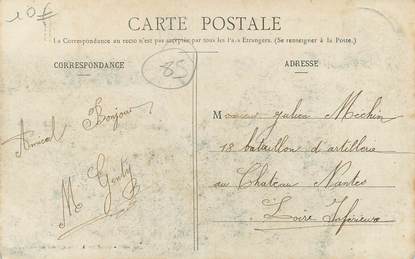 10f
CARTE POSTALE
La Correspondance au recto n'est pas acceptée par tous les Pays Etrangers. (Se renseigner à la Poste.)
CORRESPONDANCE
85
ADRESSE
Amical Bonjour
M Genty
Monsieur Julien Mechin
18 bataillon d'artillerie
au Chateau Nantes
Loire Inférieure